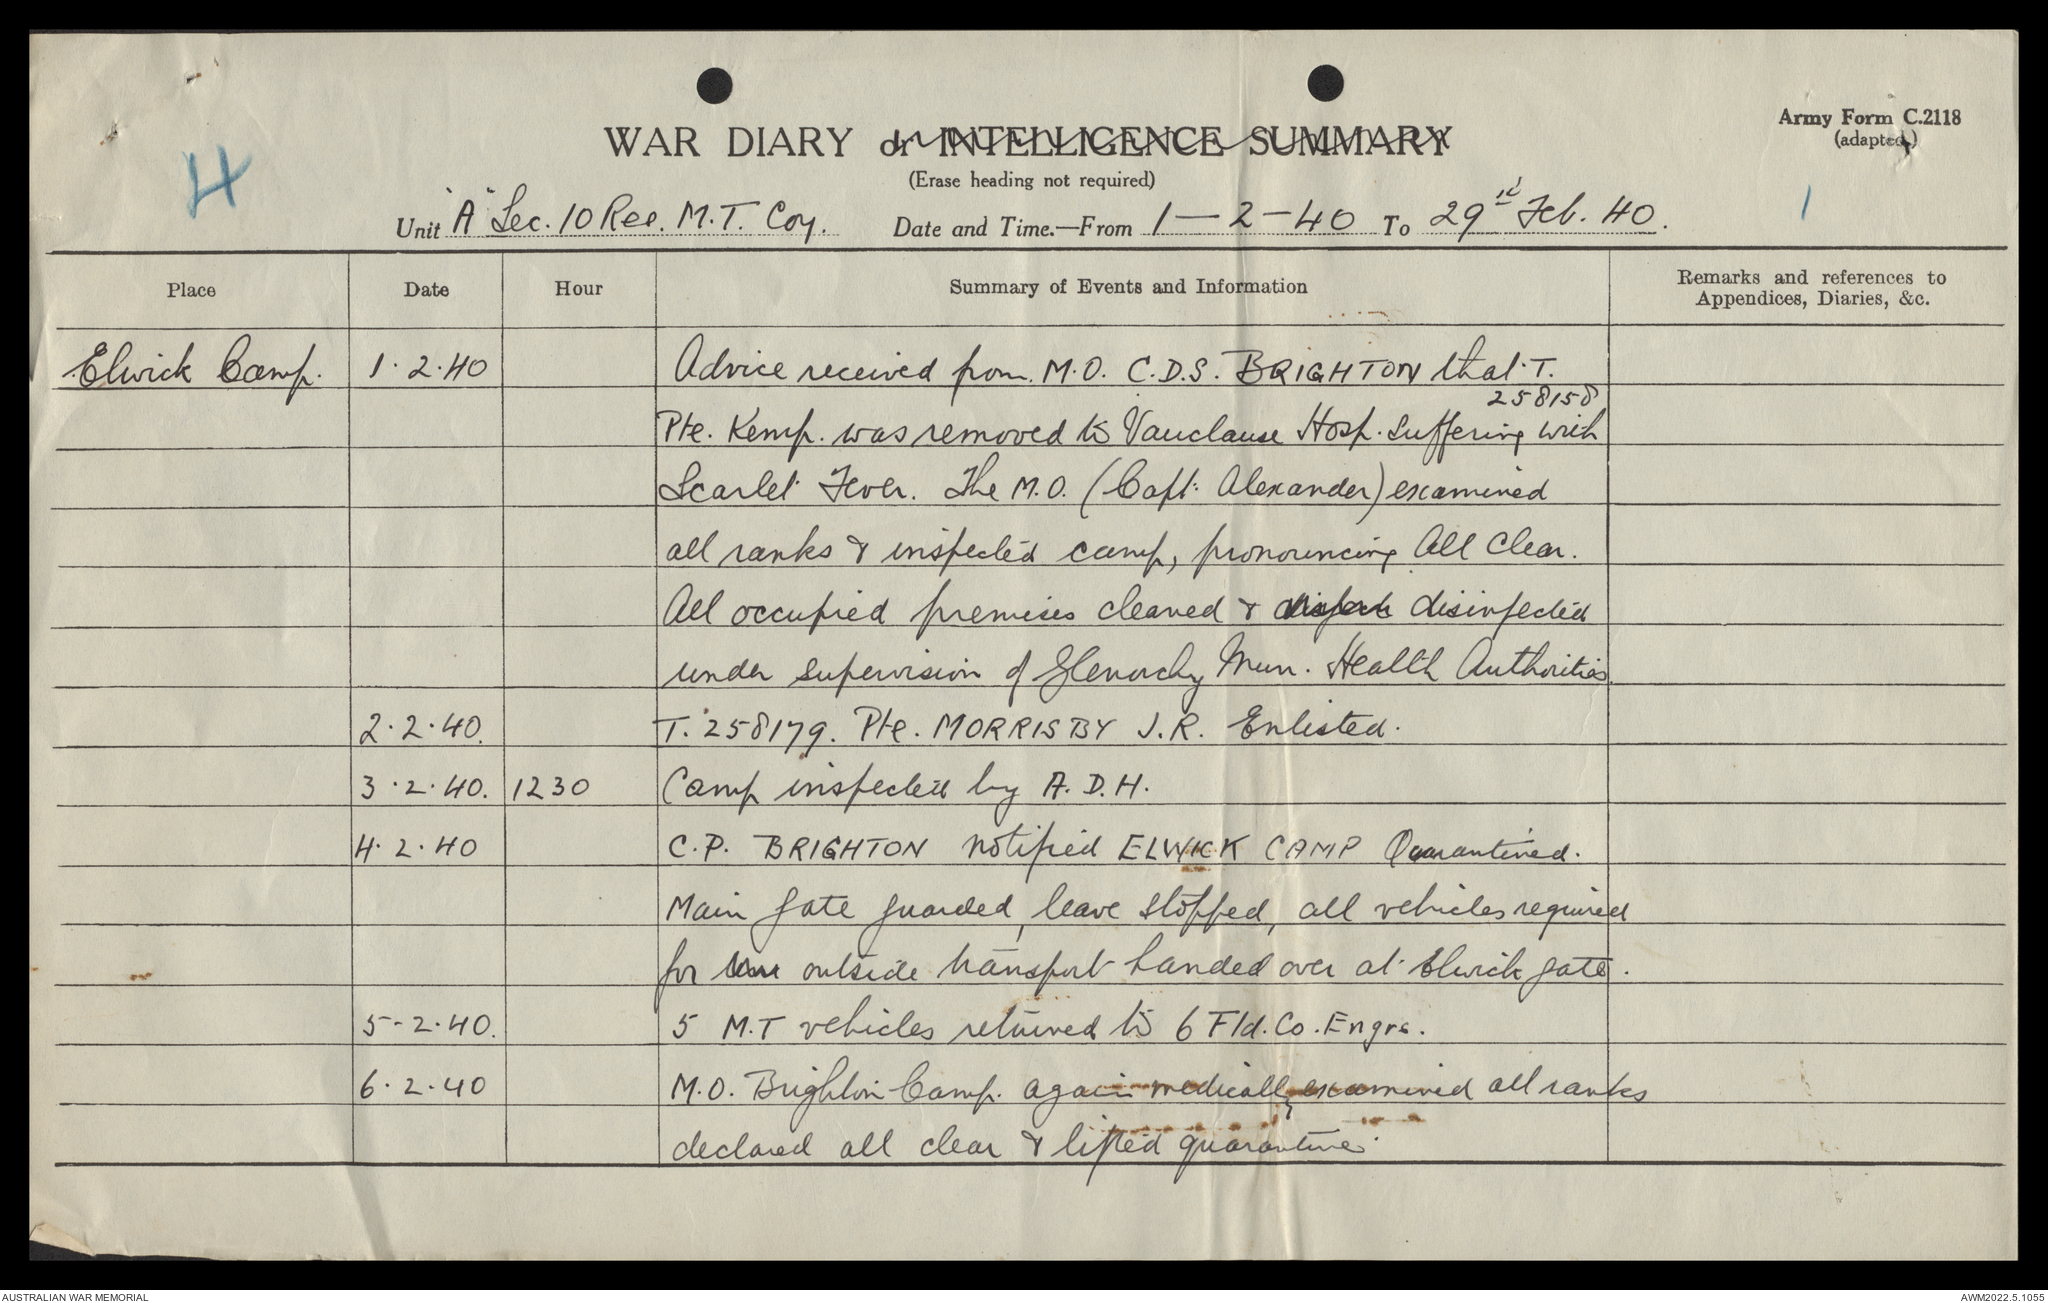 Army Form C.2118
(adapted)
WAR DIARY or INTELLIGENCE SUMMARY
(Erase heading not required)
4
1
Unit "A" Sec. 10 Res. M.T. Coy. Date and Time.—From 1-2-40 To 29th Feb. 40.
Place Date Hour Summary of Events and Information Remarks and references to
Appendices, Diaries, &c.
Elwick Camp. 1.2.40 Advice received from M.O. C.D.S. BRIGHTON that T.
258158
Pte. Kemp. was removed to Vauclause Hosp. suffering with
Scarlet Fever. The M.O. (Capt. Alexander) examined
all ranks & inspected camp, pronouncing All Clear.
All occupied premises cleaned & disinfected
under supervision of Glenorchy Mun. Health Authorities.
2.2.40. T. 258179. Pte. MORRISBY J.R. Enlisted.
3.2.40. 1230 Camp inspected by A.D.H.
4.2.40 C.P. BRIGHTON notified ELWICK CAMP Quarantined.
Main gate guarded, leave stopped, all vehicles required
for outside transport handed over at Elwick gate.
5-2.40. 5 M.T vehicles returned to 6 Fld. Co. Engrs.
6.2.40 M.O. Brighton Camp. again medically examined all ranks
declared all clear & lifted quarantine.
AUSTRALIAN WAR MEMORIAL
AWM2022.5.1055